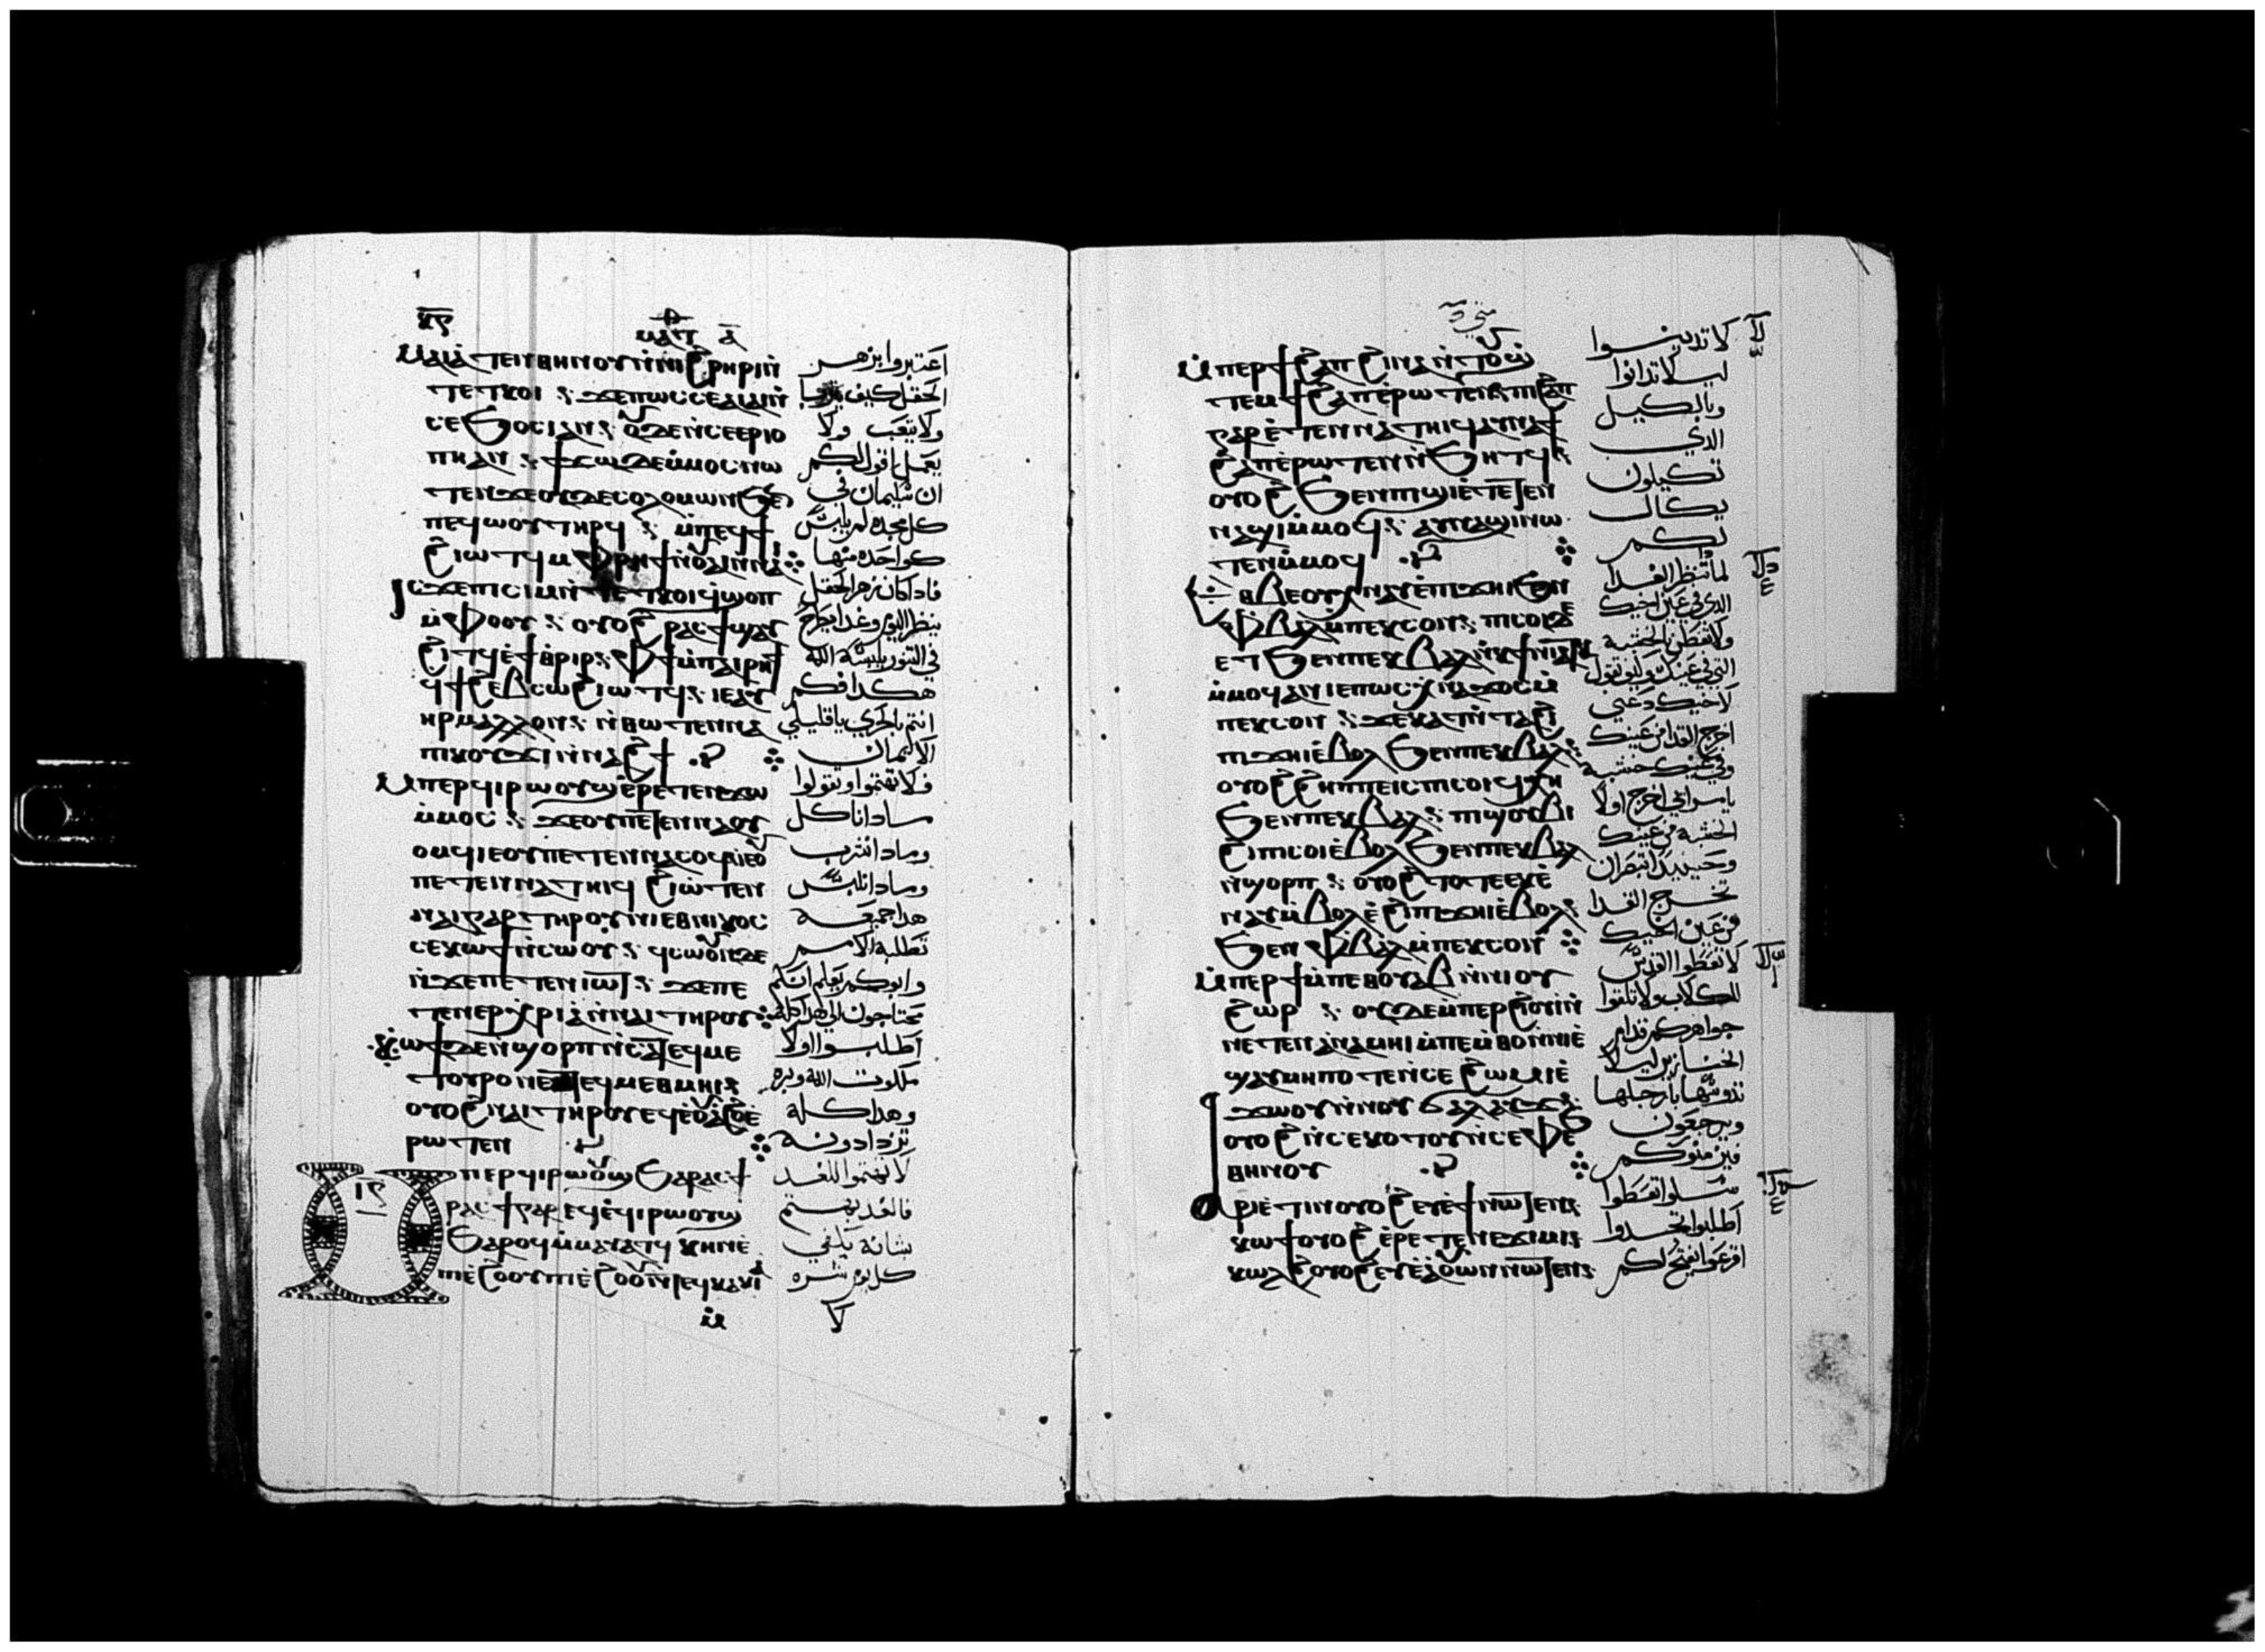 ⲕⲋ
ⲙⲁⲧ ⲁ
ⲙⲁⲓⲁⲧⲉⲛⲑⲏⲛⲟⲩⲛ̀ⲛⲓϩⲣⲏⲣⲓⲛ̀
ⲧⲉⲧⲕⲟⲓ ⳾ ϫⲉⲡⲱⲥⲥⲉⲁⲓⲁⲓⲛ̀
ⲥⲉϧⲟⲥⲓⲁⲛ ⳾ ⲟⲩⲇⲉⲛ̀ⲥⲉⲉⲣⲓⲟ
ⲡⲏⲁⲛ ⳾ ϯϫⲱⲇⲉⲙ̀ⲙⲟⲥⲛⲱ
ⲧⲉⲛϫⲉⲟⲩⲇⲉⲥⲟⲗⲟⲙⲱⲛϧⲉⲛ
ⲡⲉϥⲱⲟⲩⲧⲏⲣϥ ⳾ ⲙ̀ⲡⲉϥϯ
ϩⲓⲱⲧϥⲙ̀ⲫⲣⲏϯⲛ̀ⲟⲩⲁⲓⲛ̀ⲛⲁⲓ
ⲓⲥϫⲉⲡⲓⲥⲓⲙⲛ̀ⲧⲉⲧⲕⲟⲓϥϣⲟⲡ
ⲙ̀ⲫⲟⲟⲩ ⳾ ⲟⲩⲟϩⲣⲁⲥϯϣⲁⲩ
ϩⲓⲧϥⲉ̀ϯⲑⲣⲓⲣ ⳾ ⲫϯⲙ̀ⲡⲁⲓⲣⲏϯ
ϥϯϩⲉⲃⲥⲱϩⲓⲱⲧϥ ⳾ ⲓⲉⲁⲩ
ⲏⲣⲙⲁⲗⲗⲟⲛ ⳾ ⲛ̀ⲑⲱⲧⲉⲛⲛⲁ
ⲡⲓⲕⲟⲩϫⲓⲛ̀ⲛⲁϩϯ
ⲙ̀ⲡⲉⲣϥⲓⲣⲱⲟⲩϣⲉ̀ⲣⲉⲧⲉⲛϫⲱ
ⲙ̀ⲙⲟⲥ ⳾ ϫⲉⲟⲩⲡⲉⲧⲉⲛⲛⲁⲟⲩ
ⲟⲙϥⲓⲉⲟⲩⲡⲉⲧⲉⲛⲛⲁⲥⲟϥⲓⲉⲟⲩ
ⲡⲉⲧⲉⲛⲛⲁⲧⲏⲓϥ ϩⲓⲱⲧⲉⲛ
ⲛⲁⲓⲅⲁⲣⲧⲏⲣⲟⲩⲛⲓⲉⲑⲛⲓⲕⲟⲥ
ⲥⲉⲕⲱϯⲛ̀ⲥⲱⲟⲩ ⳾ ϥⲥⲱⲟⲩⲛⲇⲉ
ⲛ̀ϫⲉⲡⲉⲧⲉⲛⲓⲱⲧ ⳾ ϫⲉⲡⲉ
ⲧⲉⲛⲉⲣⲭⲣⲓⲁⲛ̀ⲛⲁⲓⲧⲏⲣⲟⲩ
ⲕⲱϯⲇⲉⲛ̀ϣⲟⲣⲡⲛ̀ⲥⲁⲧⲉϥⲙⲉ
ⲧⲟⲩⲣⲟⲛⲉⲙⲧⲉϥⲙⲉⲑⲙⲏⲓ ⳾
ⲟⲩⲟϩⲛⲁⲓⲧⲏⲣⲟⲩⲉⲩⲉ̀ⲟⲩⲁϩⲟⲩⲉ̀
ⲣⲱⲧⲉⲛ
ⲙ̀ⲡⲉⲣϥⲓⲣⲱⲟⲩϣϧⲁⲣⲁⲥϯ
ⲓⲅ
ⲣⲁⲥϯⲅⲁⲣⲉϥⲉ̀ϥⲓⲣⲱⲟⲩϣ
ϧⲁⲣⲟϥⲙ̀ⲙⲁⲩⲁⲧϥ ⲕⲏⲛⲉ̀
ⲡⲓⲉ̀ϩⲟⲟⲩⲡⲓⲉ̀ϩⲟⲟⲩⲛ̀ⲧⲉϥⲕⲁⲕⲓⲁ
ⲙ̀
اعتبروا بزهر
الحقل كيف
ولا يتعب ولا
يعمل اقول لكم
ان سليمان في
كل مجده لم يلبس
كواحده منها
فاداكان زهر الحقل
ينظر اليوم وغدا يطرح
في التنور يلبسة الله
هكدا فكم
انتم بالحري ياقليلي
الايمان
فلا تهتموا وتقولوا
مادا ناكل
ومادا نشرب
ومادا نلبس
هدا جميعه
تطلبه الامم
وابوكم يعلم انكم
تحتاجون الي هدا كله
اطلبوا اولا
ملكوت الله وبره
وهدا كله
تزدادونه
لا تهتموا للغد
فالغد يهتم
بشانه يكفي
كل يوم شره
لا
متي
ⲙ̀ⲡⲉⲣϯϩⲁⲡϩⲓⲛⲁⲛ̀ⲧⲟⲩ
ⲧⲉⲙϯϩⲁⲡⲉ̀ⲣⲱⲧⲉⲛ ⳾ ⲡⲓϩⲁⲡ
ⲅⲁⲣⲉ̀ⲧⲉⲛⲛⲁⲧⲏⲓϥⲁⲩⲛⲁϯ
ϩⲁⲡⲉ̀ⲣⲱⲧⲉⲛⲛ̀ϧⲏⲧϥ ⳾
ⲟⲩⲟϩϧⲉⲛⲡⲓϣⲓⲉ̀ⲧⲉⲧⲉⲛ
ⲛⲁϣⲓⲙ̀ⲙⲟϥ ⳾ ⲁⲩⲛⲁϣⲓⲛⲱ
ⲧⲉⲛⲙ̀ⲙⲟϥ
ⲉⲑⲃⲉⲟⲩⲕⲛⲁⲩⲉ̀ⲡⲓϫⲏⲓϧⲉⲛ
ⲫⲃⲁⲗⲙ̀ⲡⲉⲕⲥⲟⲛ ⳾ ⲡⲓⲥⲟⲓⲇⲉ
ⲉⲧϧⲉⲛⲡⲉⲕⲃⲁⲗⲛ̀ⲕϯⲛⲓⲁⲧⲕ
ⲙ̀ⲙⲟϥⲁⲛⲓⲉⲡⲱⲥⲭⲛⲁϫⲟⲥⲙ̀
ⲡⲉⲕⲥⲟⲛ ⳾ ϫⲉⲭⲁⲥⲛ̀ⲧⲁϩⲓ
ⲡⲓϫⲏⲓⲉ̀ⲃⲟⲗϧⲉⲛⲡⲉⲕⲃⲁⲗ
ⲟⲩⲟϩϩⲏⲡⲡⲉⲓⲥⲡⲓⲥⲟⲓϥⲭⲏ
ϧⲉⲛⲡⲉⲕⲃⲁⲗ ⳾ ⲡⲓϣⲟⲃⲓ
ϩⲓⲡⲓⲥⲟⲓⲉ̀ⲃⲟⲗϧⲉⲛⲡⲉⲕⲃⲁⲗ
ⲛ̀ϣⲟⲣⲡ ⳾ ⲟⲩⲟϩⲧⲟⲧⲉⲉⲕⲉ̀
ⲛⲁⲩⲙ̀ⲃⲟⲗⲉ̀ϩⲓⲡⲓϫⲏⲓⲉ̀ⲃⲟⲗ
ϧⲉⲛ ⲫⲃⲁⲗⲙ̀ⲡⲉⲕⲥⲟⲛ
ⲙ̀ⲡⲉⲣϯⲙ̀ⲡⲉⲑⲟⲩⲁⲃⲛ̀ⲛⲓⲟⲩ
ϩⲱⲣ ⳾ ⲟⲩⲇⲉⲙ̀ⲡⲉⲣϩⲓⲟⲩⲓⲛ̀
ⲛⲉⲧⲉⲛⲁ̀ⲛⲁⲙⲏⲓⲙ̀ⲡⲉⲙ̀ⲑⲟⲛ̀ⲛⲓⲉ̀
ϣⲁⲩⲙⲏⲡⲟⲧⲉⲛ̀ⲥⲉϩⲱⲙⲓⲉ̀
ϫⲱⲟⲩⲛ̀ⲛⲟⲩϭⲁⲗⲁⲩϫ ⳾
ⲟⲩⲟϩⲛ̀ⲥⲉⲕⲟⲧⲟⲩⲛ̀ⲥⲉⲫⲉϧ
ⲑⲏⲛⲟⲩ
ⲁⲣⲓⲉ̀ⲧⲓⲛⲟⲩⲟϩⲉⲩⲉ̀ϯⲛⲱⲧⲉⲛ ⳾
ⲕⲱϯⲟⲩⲟϩⲉ̀ⲣⲉⲧⲉⲛⲉϫⲓⲙⲓ ⳾
ⲕⲱⲗϩⲟⲩⲟϩⲉⲩⲉ̀ⲁⲟⲩⲱⲛⲛⲱⲧⲉⲛ ⳾
لا تدينوا
ليلا تدانوا
وبالكيل
الدي
تكيلون
يكال
لكم
لما تنظر القدا
الدي في عين اخيك
ولا تفطن بالخشبه
التي في عينك وكيف تقول
لاخيك دعني
اخرج القدا من عينك
وفي عينك خشبه
يامرائي اخرج اولا
الخشبه من عينك
وحينيد تبصران
تخرج القدا
من عين اخيك
لا تعطوا القدس
للكلاب ولا تلقوا
جواهركم قدام
الخنازير ليلا
تدوسها بارجلها
ويرجعون
فيزمنوكم
سلوا تعطوا
اطلبوا تجدوا
اقرعوا يفتح لكم